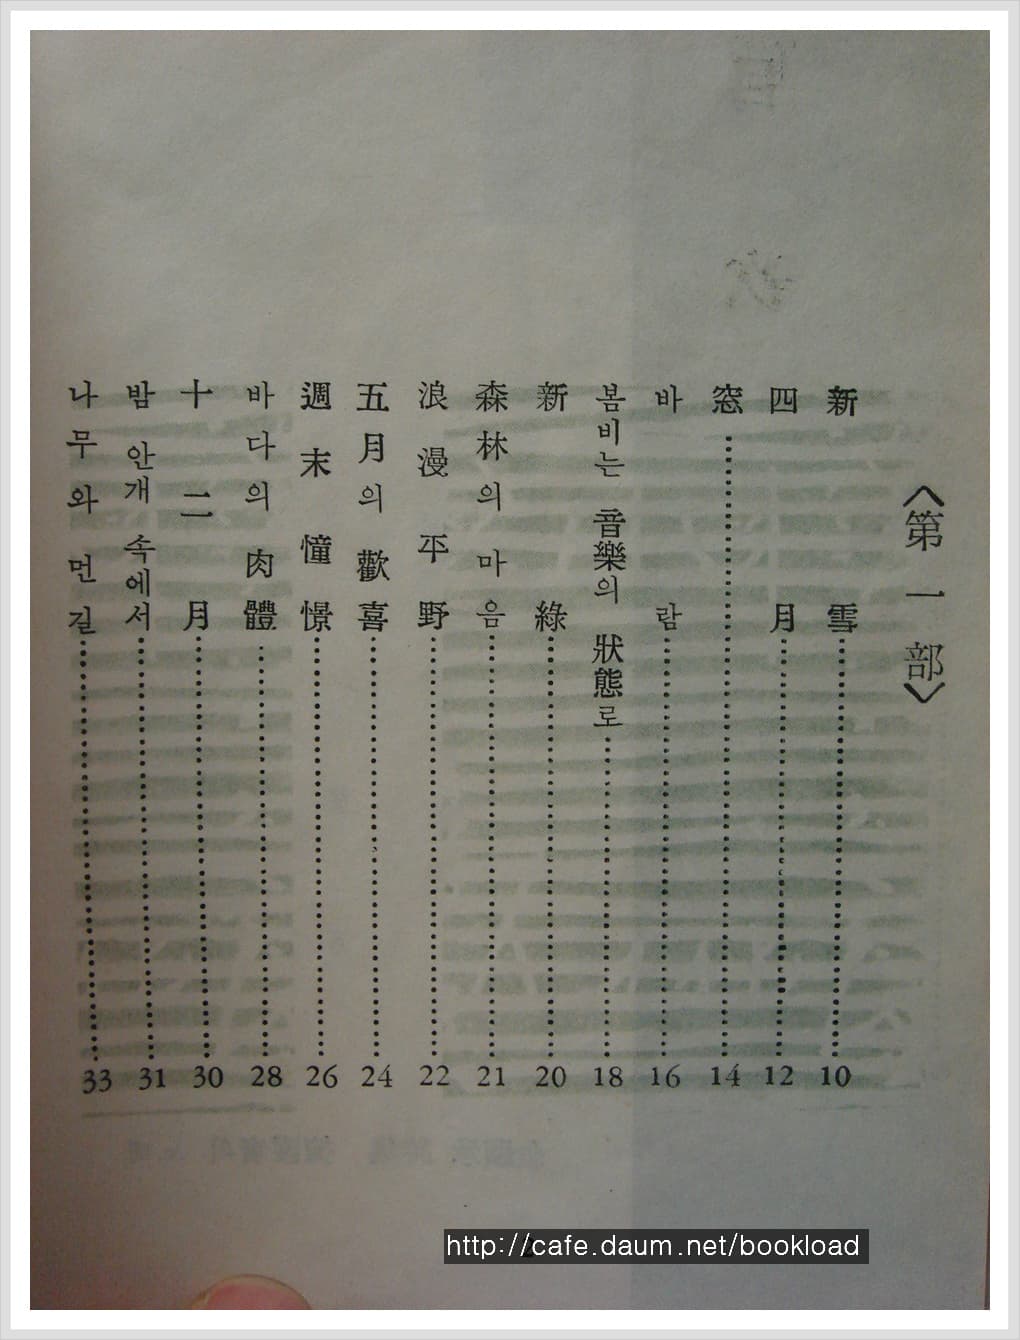 〈第一部〉
新雪 10
四月 12
窓 14
바람 16
봄비는 音樂의 狀態로 18
新綠 20
森林의 마음 21
浪漫平野 22
五月의 歡喜 24
週末憧憬 26
바다의 肉體 28
十二月 30
밤 안개 속에서 31
나무와 먼길 33
http://cafe.daum.net/bookload